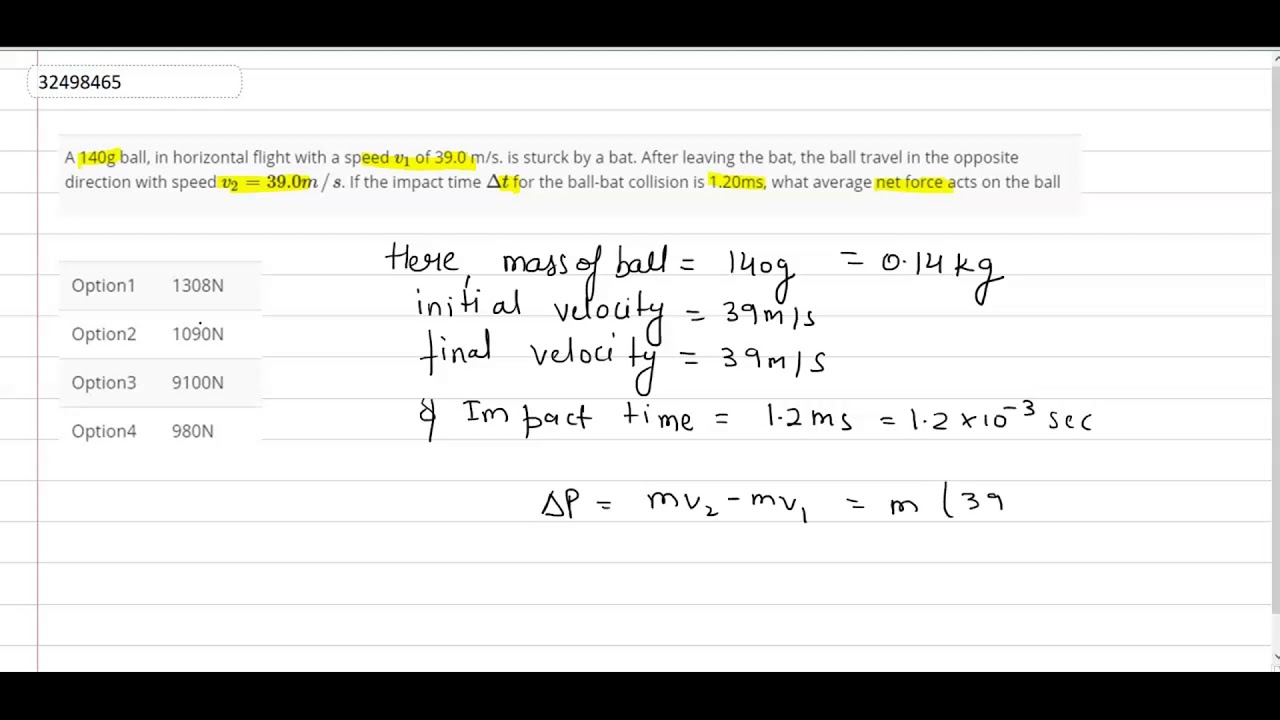 32498465
A 140g ball, in horizontal flight with a speed v₁ of 39.0 m/s. is sturck by a bat. After leaving the bat, the ball travel in the opposite
direction with speed v₂ = 39.0m/s. If the impact time Δt for the ball-bat collision is 1.20ms, what average net force acts on the ball
Here, mass of ball = 140g = 0.14kg
Option1 1308N
initial velocity = 39m/s
Option2 1090N
final velocity = 39m/s
Option3 9100N
& Impact time = 1.2ms = 1.2×10⁻³ sec
Option4 980N
ΔP = mv₂ - mv₁ = m (39